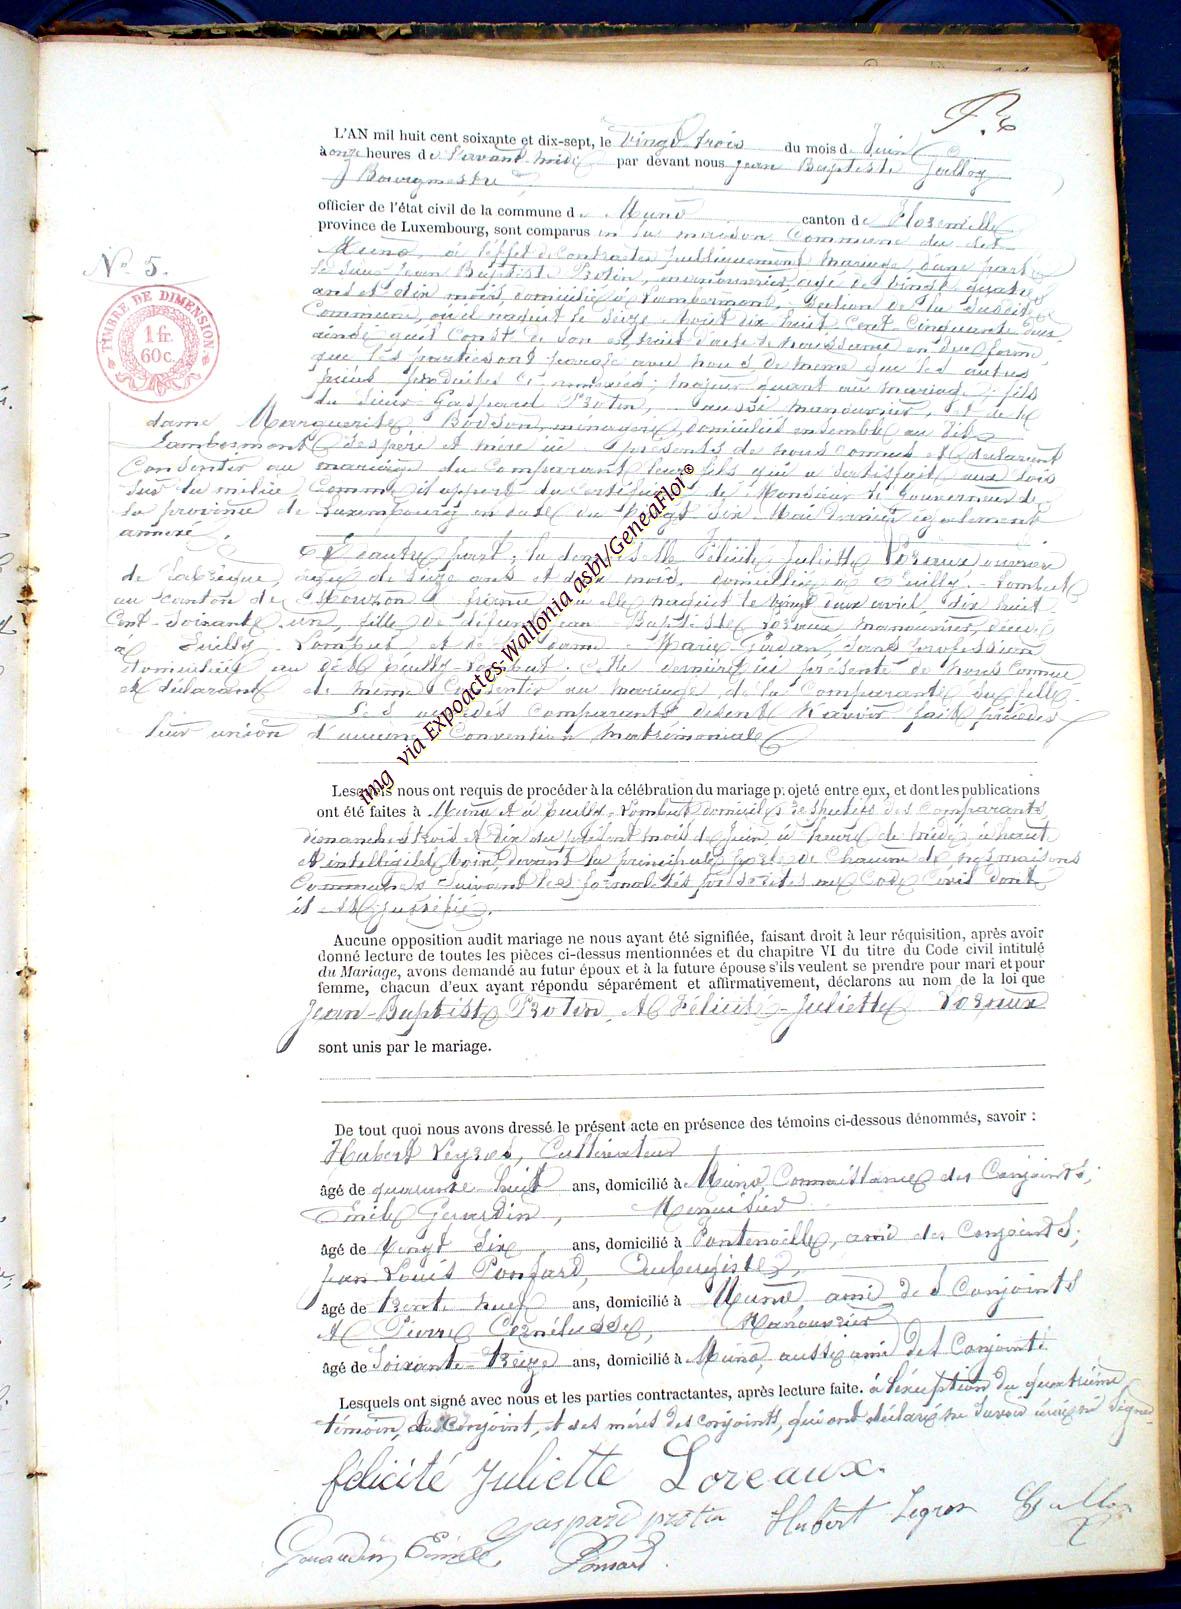 F. 6
L'AN mil huit cent soixante et dix-sept, le vingt trois du mois de Juin
à onze heures de l'avant midi par devant nous Jean Baptiste Galloy
Bourgmestre
officier de l'état civil de la commune de Muno canton de Florenville
province de Luxembourg, sont comparus en la maison Commune du dit
Muno, à l'effet de contracter publiquement mariage, d'une part :
le sieur Jean Baptiste Protin, manouvrier, agé de vingt quatre
ans et dix mois, domicilié à Lambermont, Section de la susdite
Commune, où il naquit le Seize Août dix huit Cent Cinquante deux
ainsi qu'il Conste de son extrait d'acte de naissance en due forme,
que les parties ont paraphé avec nous, de même que les autres
pièces produites ci annexées ; majeur quant au mariage ; fils
du Sieur Gaspard Protin, aussi manouvrier, et de la
N° 5.
TIMBRE DE DIMENSION
1 fr.
60 c.
dame Marguerite Bodson, menagère, domiciliés ensemble au dit
Lambermont, ses père et mère ici présents de nous connus et déclarant
Consentir au mariage du Comparant leur fils qui a satisfait aux lois
sur la milice, Comme il appert du certificat de Monsieur le Gouverneur de
la province de Luxembourg en date du vingt six Mai dernier également
annexé.
Et d'autre part ; la demoiselle Félicité Juliette Loreaux ouvrière
de fabrique, agée de Seize ans et deux mois, domiciliée à Euilly-Lombut
au canton de Mouzon france où elle naquit le vingt deux avril dix huit
Cent-Soixante-un, fille de défunt Jean-Baptiste Loreaux, manouvrier, décédé
à Euilly-Lombut et de dame Marie Gordan, sans profession
domiciliée au dit Euilly-Lombut. Cette dernière ici présente de nous connue
et déclarant de même Consentir au mariage de la Comparante sa fille.
Les susdits comparants disent n'avoir fait précéder
leur union d'aucune Convention matrimoniale
img via Expoactes-Wallonia asbl/GeneaFloi®
Lesquels nous ont requis de procéder à la célébration du mariage projeté entre eux, et dont les publications
ont été faites à Muno et à Euilly-Lombut domiciles respectifs des Comparants,
dimanches trois et dix du présent mois de Juin, à heure de midi, à haute
et intelligible voix, devant la principale porte de Chacune de nos maisons
Communes Suivant les formalités prescrites au Code Civil dont
il est justifié.
Aucune opposition audit mariage ne nous ayant été signifiée, faisant droit à leur réquisition, après avoir
donné lecture de toutes les pièces ci-dessus mentionnées et du chapitre VI du titre du Code civil intitulé
du Mariage, avons demandé au futur époux et à la future épouse s'ils veulent se prendre pour mari et pour
femme, chacun d'eux ayant répondu séparément et affirmativement, déclarons au nom de la loi que
Jean-Baptiste Protin, et Félicité-Juliette Loreaux
sont unis par le mariage.
De tout quoi nous avons dressé le présent acte en présence des témoins ci-dessous dénommés, savoir :
Hubert Legros, Cultivateur
âgé de quarante huit ans, domicilié à Muno, Connaissance des Conjoints ;
Emile Gérardin, Menuisier
âgé de vingt six ans, domicilié à Fontenoille, ami des Conjoints ;
Jean Louis Ponsard, Aubergiste,
âgé de trente neuf ans, domicilié à Muno, ami des Conjoints
et Pierre Cornélusse, Manouvrier
âgé de Soixante-treize ans, domicilié à Muno, aussi ami des Conjoints.
Lesquels ont signé avec nous et les parties contractantes, après lecture faite. à l'exception du quatrième
témoin, du Conjoint, et des mères des conjoints, qui ont déclaré ne savoir écrire ni signer
félicité Juliette Loreaux.
Gaspard protin Hubert Legros Galloy
Gérardin Emile Ponsard